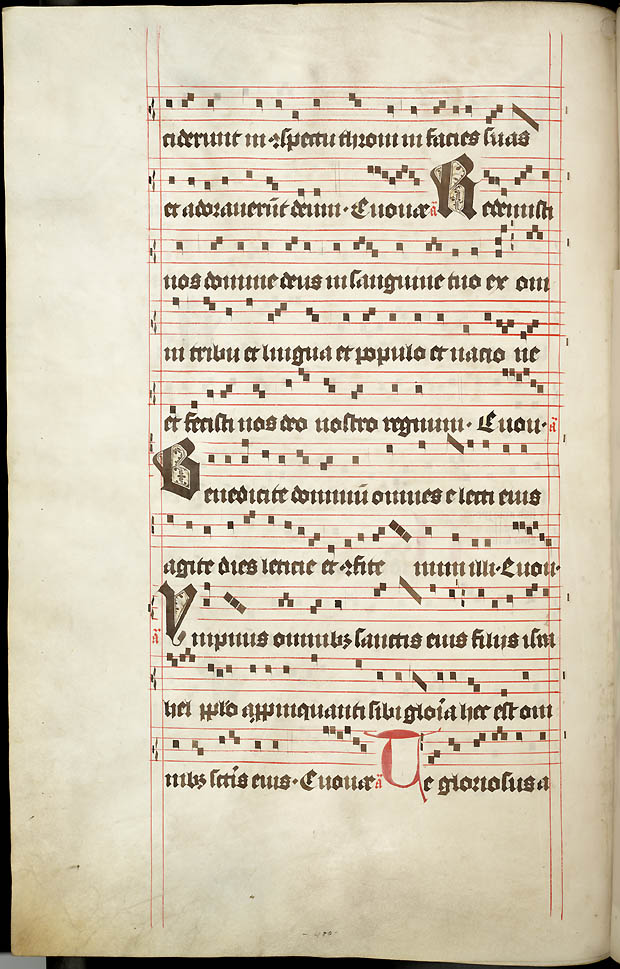 ciderunt in ꝯspectu throni in facies suas
et adoraverūt deum · Euouae a̅ Redemisti
nos domine deus in sanguine tuo ex om
ni tribu et lingua et populo et nacio ne
et fecisti nos deo nostro regnum · Euou · a̅
Benedicite dominū omnes e lecti eius
agite dies leticie et ꝯfite mini illi · Euou ·
a̅ Ympnus omnibꝫ sanctis eius filijs isra
hel pplo appinquanti sibi glōia hec est om
nibꝫ sctīs eius · Euouae a̅ Te gloriosus a